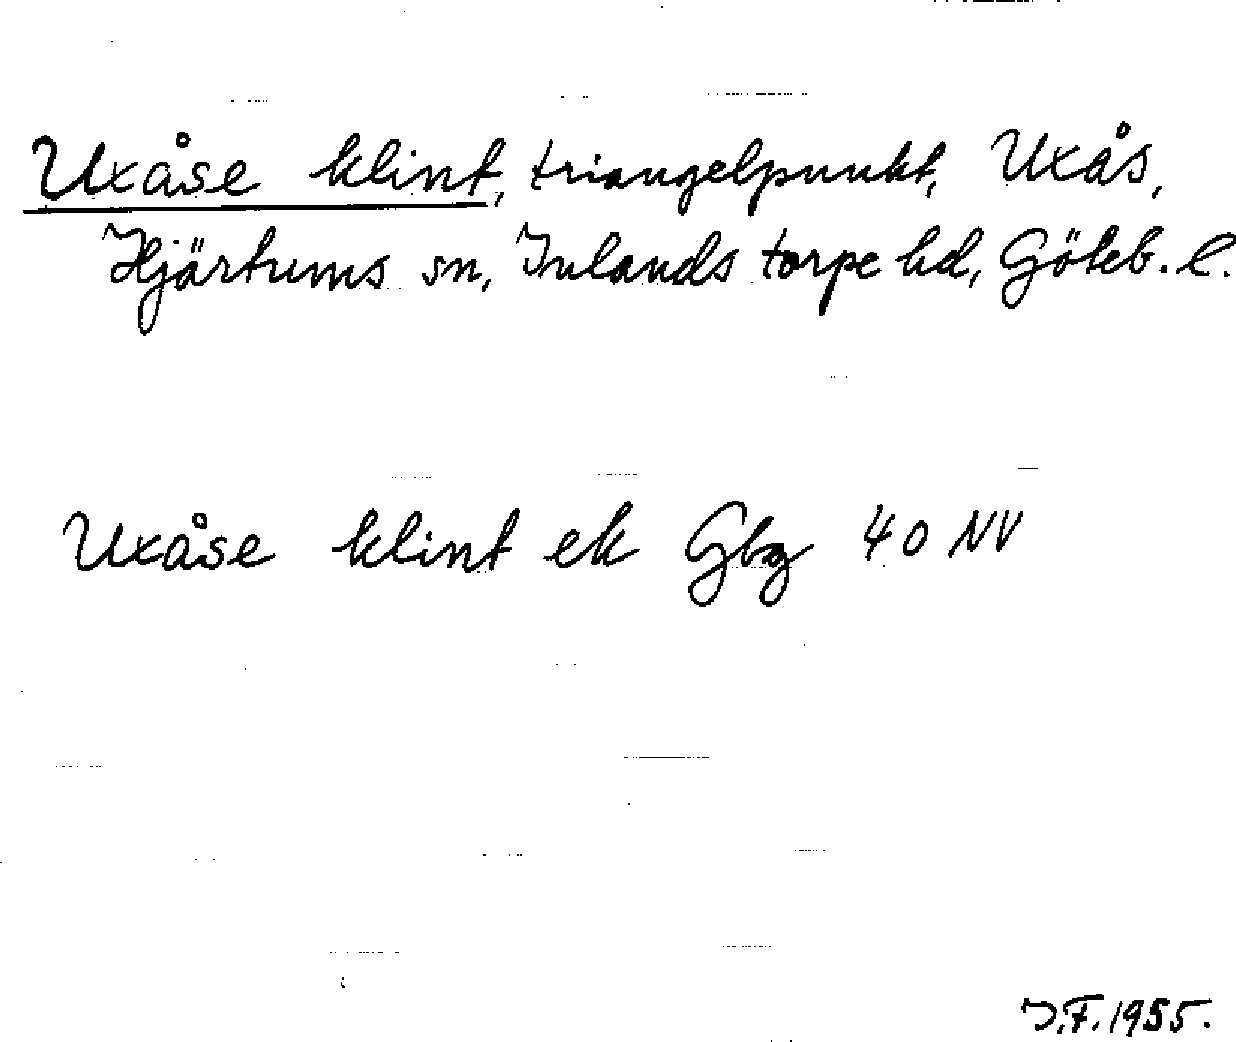 Uxåse klint, triangelpunkt, Uxås,
Hjärtums sn, Inlands torpe hd, Göteb. l.
Uxåse klint ek Gbg 40 NV
J.F. 1955.